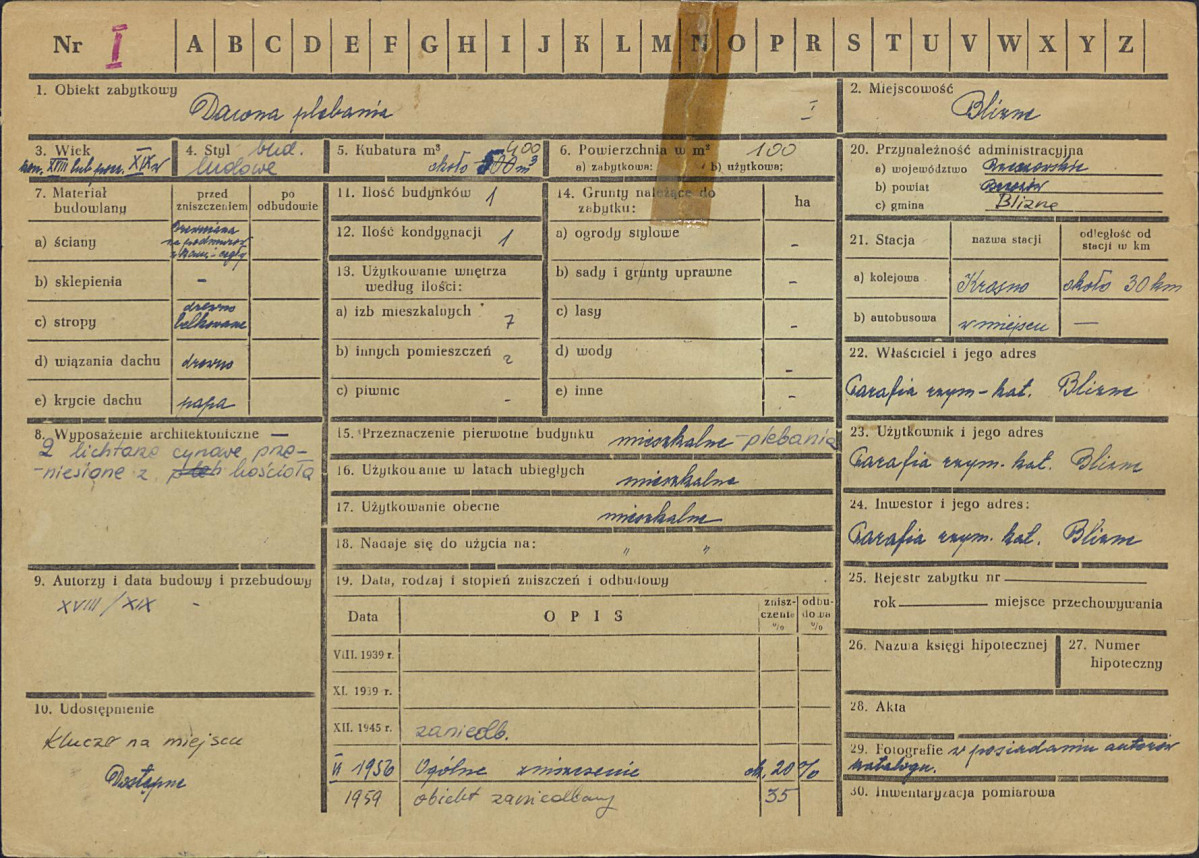 Nr I A B C D E F G H I J K L M N O P R S T U V W X Y Z
1. Obiekt zabytkowy
Dawna plebania I
2. Miejscowość
Blizne
3. Wiek
kon. XVIII lub pocz. XIX w
4. Styl bud.
ludowe
5. Kubatura m³ 400
około 500 m³
6. Powierzchnia w m² 100
a) zabytkowa: b) użytkowa;
20. Przynależność administracyjna
a) województwo Rzeszowskie
b) powiat Brzozów
c) gmina Blizne
7. Materiał
budowlany
przed
zniszczeniem
po
odbudowie
a) ściany
drewniana
na podmurow.
b) sklepienia -
c) stropy
drewno
belkowane
d) wiązania dachu drewno
e) krycie dachu papa
8. Wyposażenie architektoniczne —
2 lichtarze cynowe prze-
-niesione z kościoła
9. Autorzy i data budowy i przebudowy
XVIII/XIX -
10. Udostępnienie
Klucze na miejscu
Dostępne
11. Ilość budynków 1
12. Ilość kondygnacji 1
13. Użytkowanie wnętrza
według ilości:
a) izb mieszkalnych 7
b) innych pomieszczeń 2
c) piwnic -
14. Grunty należące do
zabytku:
ha
a) ogrody stylowe -
b) sady i grunty uprawne -
c) lasy -
d) wody -
e) inne -
15. Przeznaczenie pierwotne budynku mieszkalne - plebania
16. Użytkowanie w latach ubiegłych
mieszkalne
17. Użytkowanie obecne
mieszkalne
18. Nadaje się do użycia na: " "
19. Data, rodzaj i stopień zniszczeń i odbudowy
Data
OPIS
znisz-
czenie
%
odbu-
dowa
%
VIII. 1939 r.
XI. 1939 r.
XII. 1945 r. zaniedb.
VI 1956 Ogólne zniszczenie ok. 20%
1959 obiekt zaniedbany 35
21. Stacja
nazwa stacji
odległość od
stacji w km
a) kolejowa Krosno około 30 km
b) autobusowa w miejscu —
22. Właściciel i jego adres
Parafia rzym-kat. Blizne
23. Użytkownik i jego adres
Parafia rzym. kat. Blizne
24. Inwestor i jego adres:
Parafia rzym. kat. Blizne
25. Rejestr zabytku nr
rok miejsce przechowywania
26. Nazwa księgi hipotecznej
27. Numer
hipoteczny
28. Akta
29. Fotografie w posiadaniu autorów
katalogu.
30. Inwentaryzacja pomiarowa